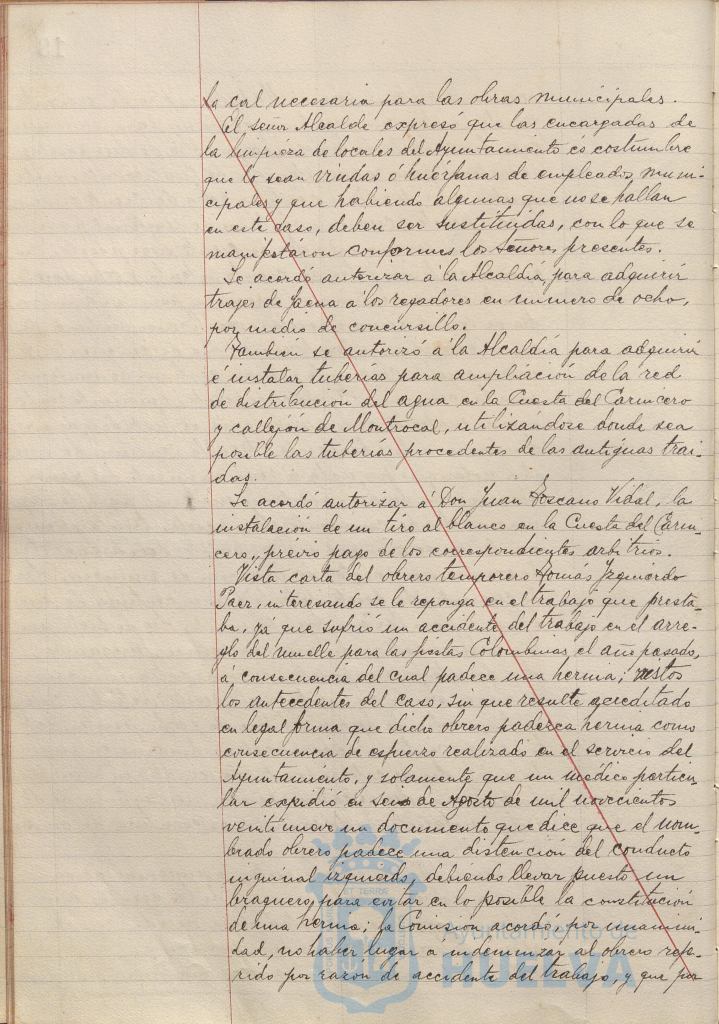 la cal necesaria para las obras municipales.
El señor Alcalde expresó que las encargadas de
la limpieza de locales del Ayuntamiento es costumbre
que lo sean viudas ó huérfanas de empleados muni-
cipales y que habiendo algunas que no se hallan
en este caso, deben ser sustituidas, con lo que se
manifestaron conformes los señores presentes.
Se acordó autorizar á la Alcaldía para adquirir
trajes de faena á los regadores en número de ocho,
por medio de concursillo.
También se autorizó á la Alcaldía para adquirir
é instalar tuberías para ampliación de la red
de distribución del agua en la Cuesta del Carnicero
y callejón de Montrocal, utilizándose donde sea
posible las tuberías procedentes de las antiguas traí-
das.
Se acordó autorizar á Don Juan Toscano Vidal, la
instalación de un tiro al blanco en la Cuesta del Carni-
cero, previo pago de los correspondientes arbitrios.
Vista carta del obrero temporero Tomás Izquierdo
Paez, interesando se le reponga en el trabajo que presta-
ba, ya que sufrió un accidente del trabajo en el arre-
glo del muelle para las fiestas Colombinas el año pasado,
á consecuencia del cual padece una hernia; vistos
los antecedentes del caso, sin que resulte acreditado
en legal forma que dicho obrero padezca hernia como
consecuencia de esfuerzo realizado en el servicio del
Ayuntamiento, y solamente que un médico particu-
lar expidió en seis de Agosto de mil novecientos
veintinueve un documento que dice que el nom-
brado obrero padece una distención del conducto
inguinal izquierdo, debiendo llevar puesto un
braguero para evitar en lo posible la constitución
de una hernia; la Comisión acordó por unanimi-
dad, no haber lugar a indemnizar al obrero refe-
rido por razón de accidente del trabajo, y que por
Ayuntamiento de
HUELVA